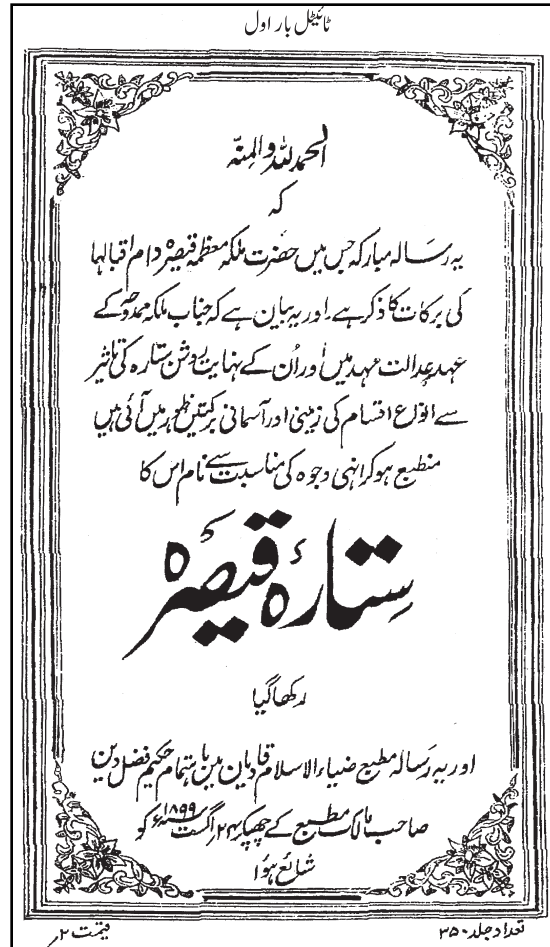 ٹائیٹل بار اول
الحمد للہ والمنہ
کہ
یہ رسالہ مبارکہ جس میں حضرت ملکہ معظمہ قیصرہ دام اقبالہا
کی برکات کا ذکر ہے۔ اور یہ بیان ہے کہ جناب ملکہ ممدوحہ کے
عہد عدالت مہد میں اور اُن کے نہایت روشن ستارہ کی تاثیر
سے انواع اقسام کی زمینی اور آسمانی برکتیں ظہور میں آئی ہیں
منطبع ہو کر انہی وجوہ کی مناسبت سے نام اس کا
ستارۂ قیصرہ
رکھا گیا
اور یہ رسالہ مطبع ضیاء الاسلام قادیان میں باہتمام حکیم فضل دین
صاحب مالک مطبع کے چھپکر ۲۴ اگست ۱۸۹۹ء کو
شائع ہوا
تعداد جلد ۳۵۰
قیمت ۲؍